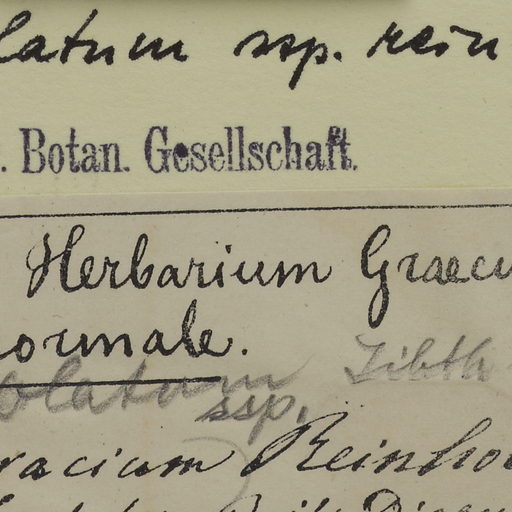 latum ssp. rein
. Botan. Gesellschaft.
Herbarium Graecu
normale.
olatum Sibth
ssp.
racium Reinho